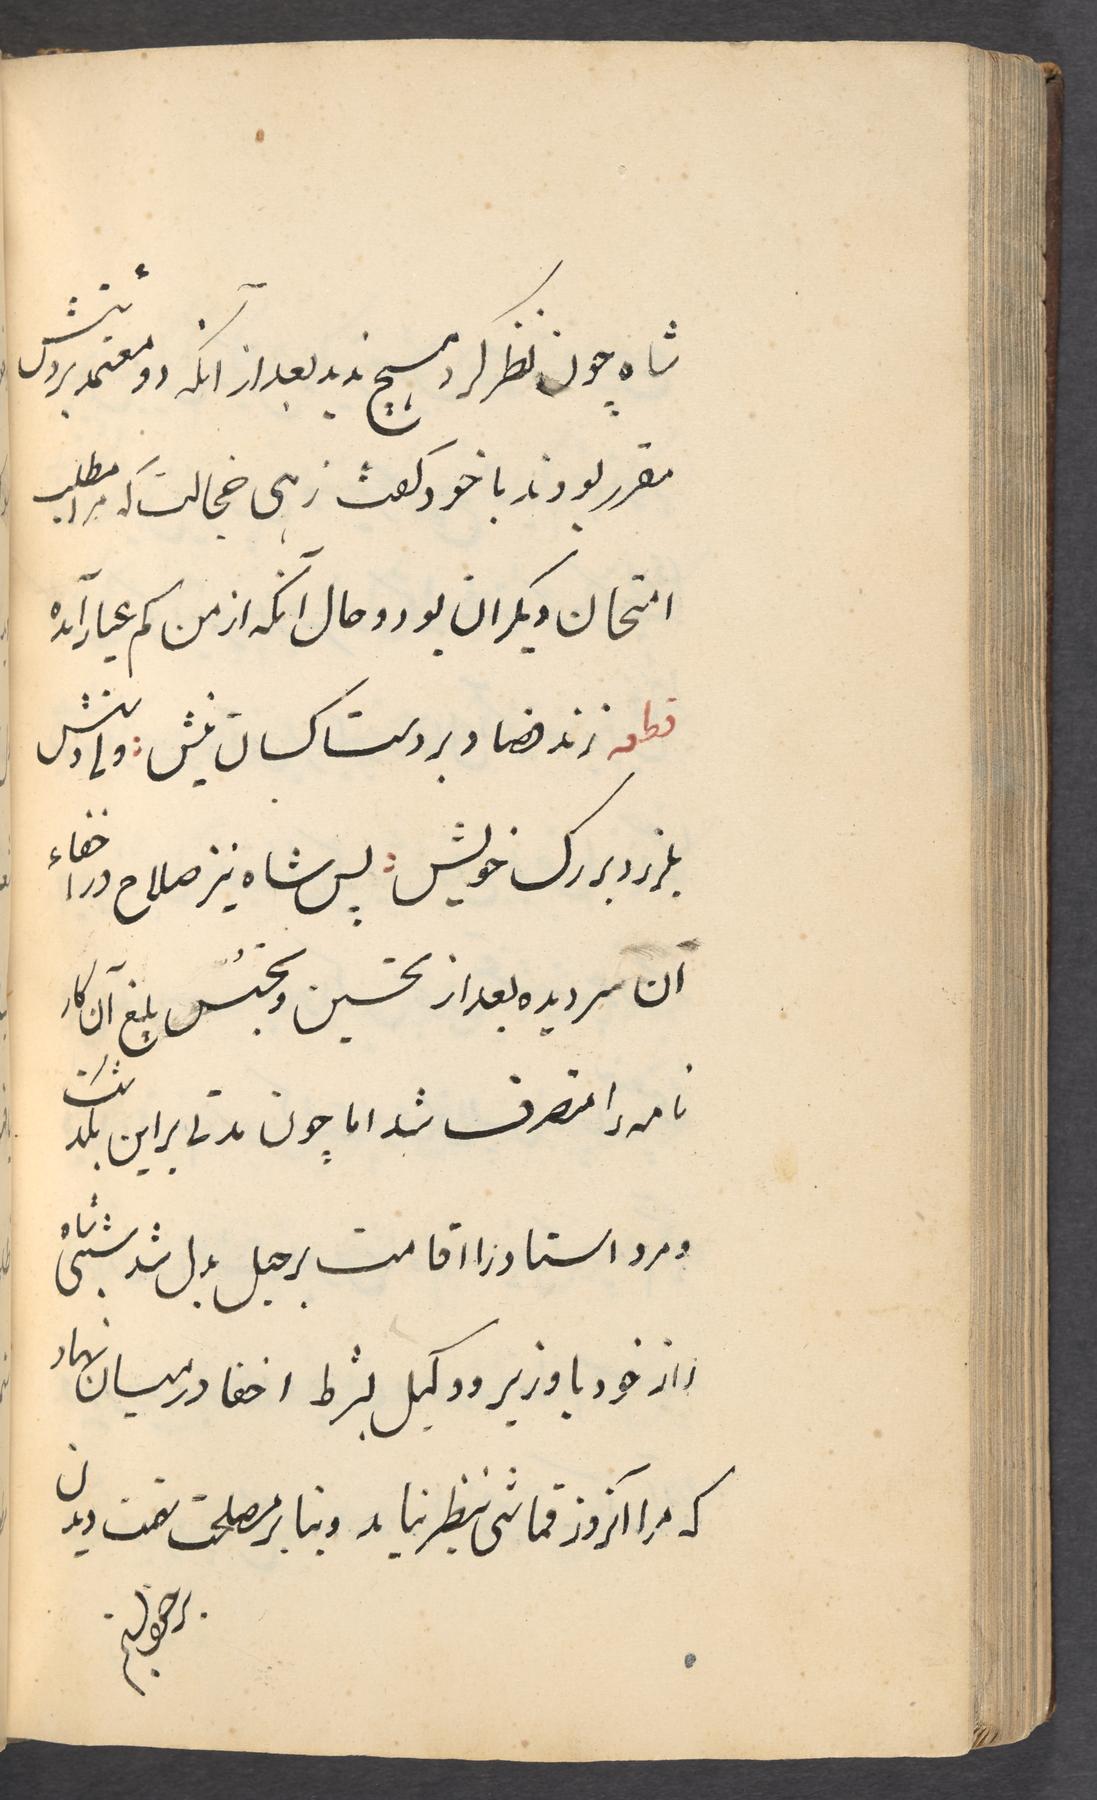 شاه چون نظر کرد هیچ ندید بعد از آنکه دو معتمد بر دیدنش
مقرر بودند با خود گفت زهی خجالت که مرا مطلب
امتحان دیگران بود و حال آنکه از من کم عیار آمده
قطعه زند فصاد بر دست کسان نیش : ولی دستش
بلرزد بر رگ خویش : پس شاه نیز صلاح در اخفاء
آن سر دیده بعد از تحسین و تجسّس بلیغ آن کار
نامه را متصرف شد اما چون مدتی براین بگذشت
و مرد استاد را اقامت برحیل بدل شد شبی شاه
راز خود با وزیر و وکیل بشرط اخفا در میان نهاد
که مرا آنروز قماشی بنظر نیامد و بنا بر مصلحت وقت دیدن
بر خود